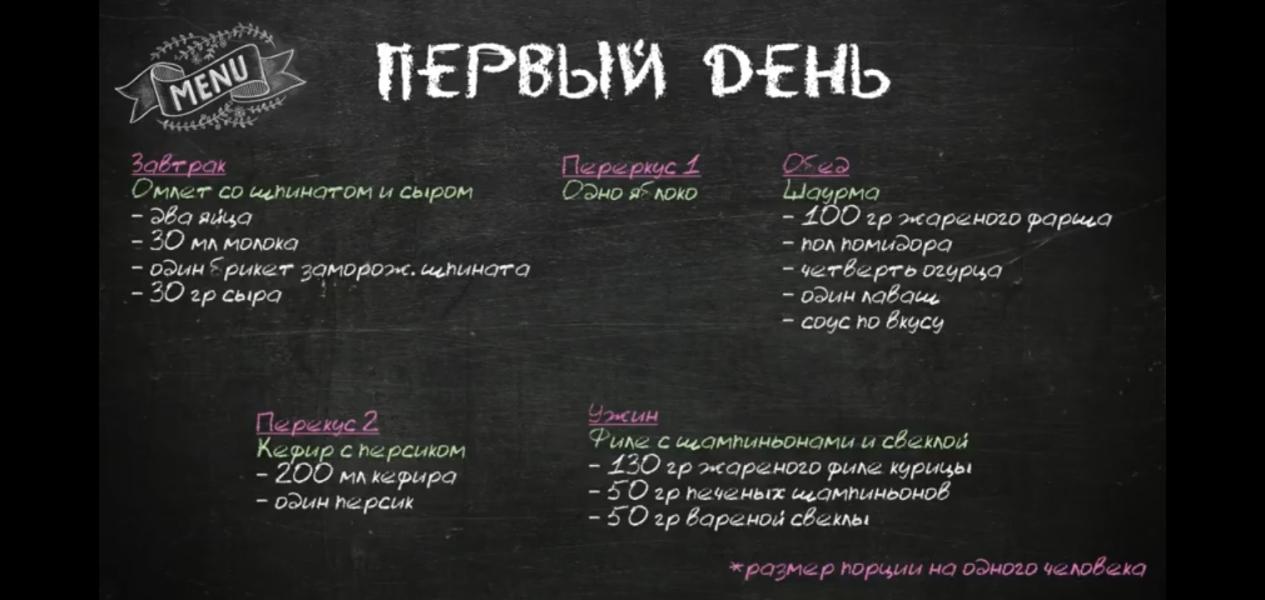 MENU
ПЕРВЫЙ ДЕНЬ
Завтрак
Омлет со шпинатом и сыром
- два яйца
- 30 мл молока
- один брикет заморож. шпината
- 30 гр сыра
Переркус 1
Одно яблоко
Обед
Шаурма
- 100 гр жареного фарша
- пол помидора
- четверть огурца
- один лаваш
- соус по вкусу
Перекус 2
Кефир с персиком
- 200 мл кефира
- один персик
Ужин
Филе с шампиньонами и свеклой
- 130 гр жареного филе курицы
- 50 гр печеных шампиньонов
- 50 гр вареной свеклы
*размер порции на одного человека